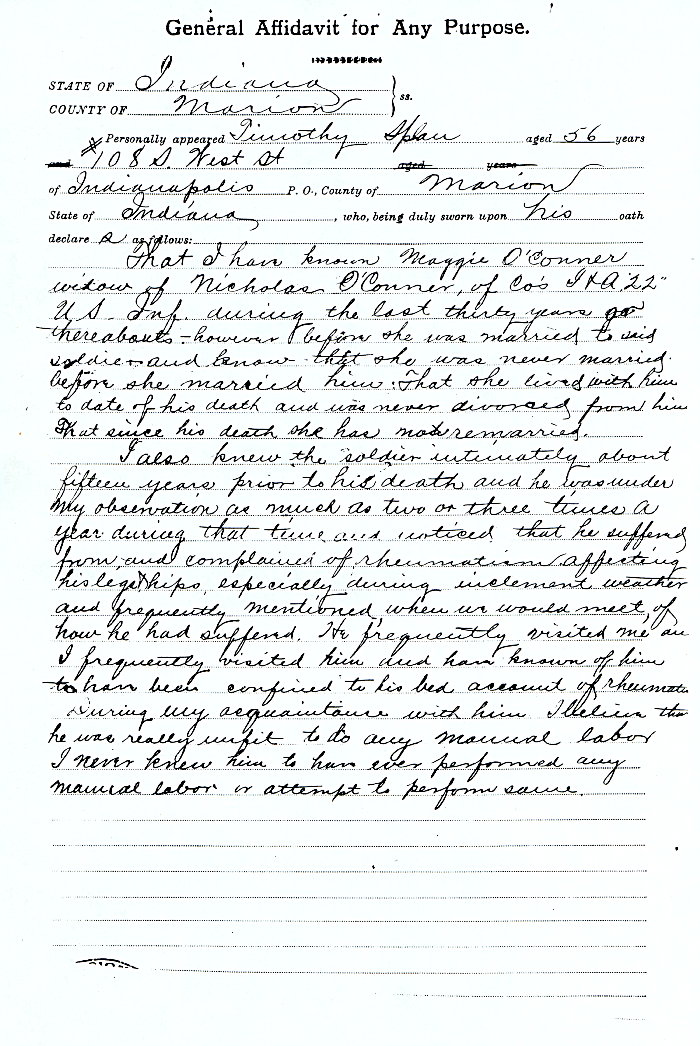 General Affidavit for Any Purpose.
STATE OF Indiana
COUNTY OF Marion ss.
Personally appeared Timothy Splan aged 56 years
and 108 S. West St aged years
of Indianapolis P. O., County of Marion
State of Indiana, who, being duly sworn upon his oath
declare s as follows:
That I have known Maggie O'Conner
widow of Nicholas O'Conner, of Co's I & A 22"
U.S. Inf. during the last thirty years or
thereabouts - however before she was married to said
soldier and know that she was never married
before she married him. That she lived with him
to date of his death and was never divorced from him
That since his death she has not remarried.
I also knew the soldier intimately about
fifteen years prior to his death and he was under
my observation as much as two or three times a
year during that time and noticed that he suffered
from and complained of rheumatism affecting
his legs & hips, especially during inclement weather
and frequently mentioned when we would meet, of
how he had suffered. He frequently visited me an
I frequently visited him and have known of him
to have been confined to his bed account of rheumatis
During my acquaintance with him I believe tha
he was really unfit to do any manual labor
I never knew him to have ever performed any
manual labor or attempt to perform same.